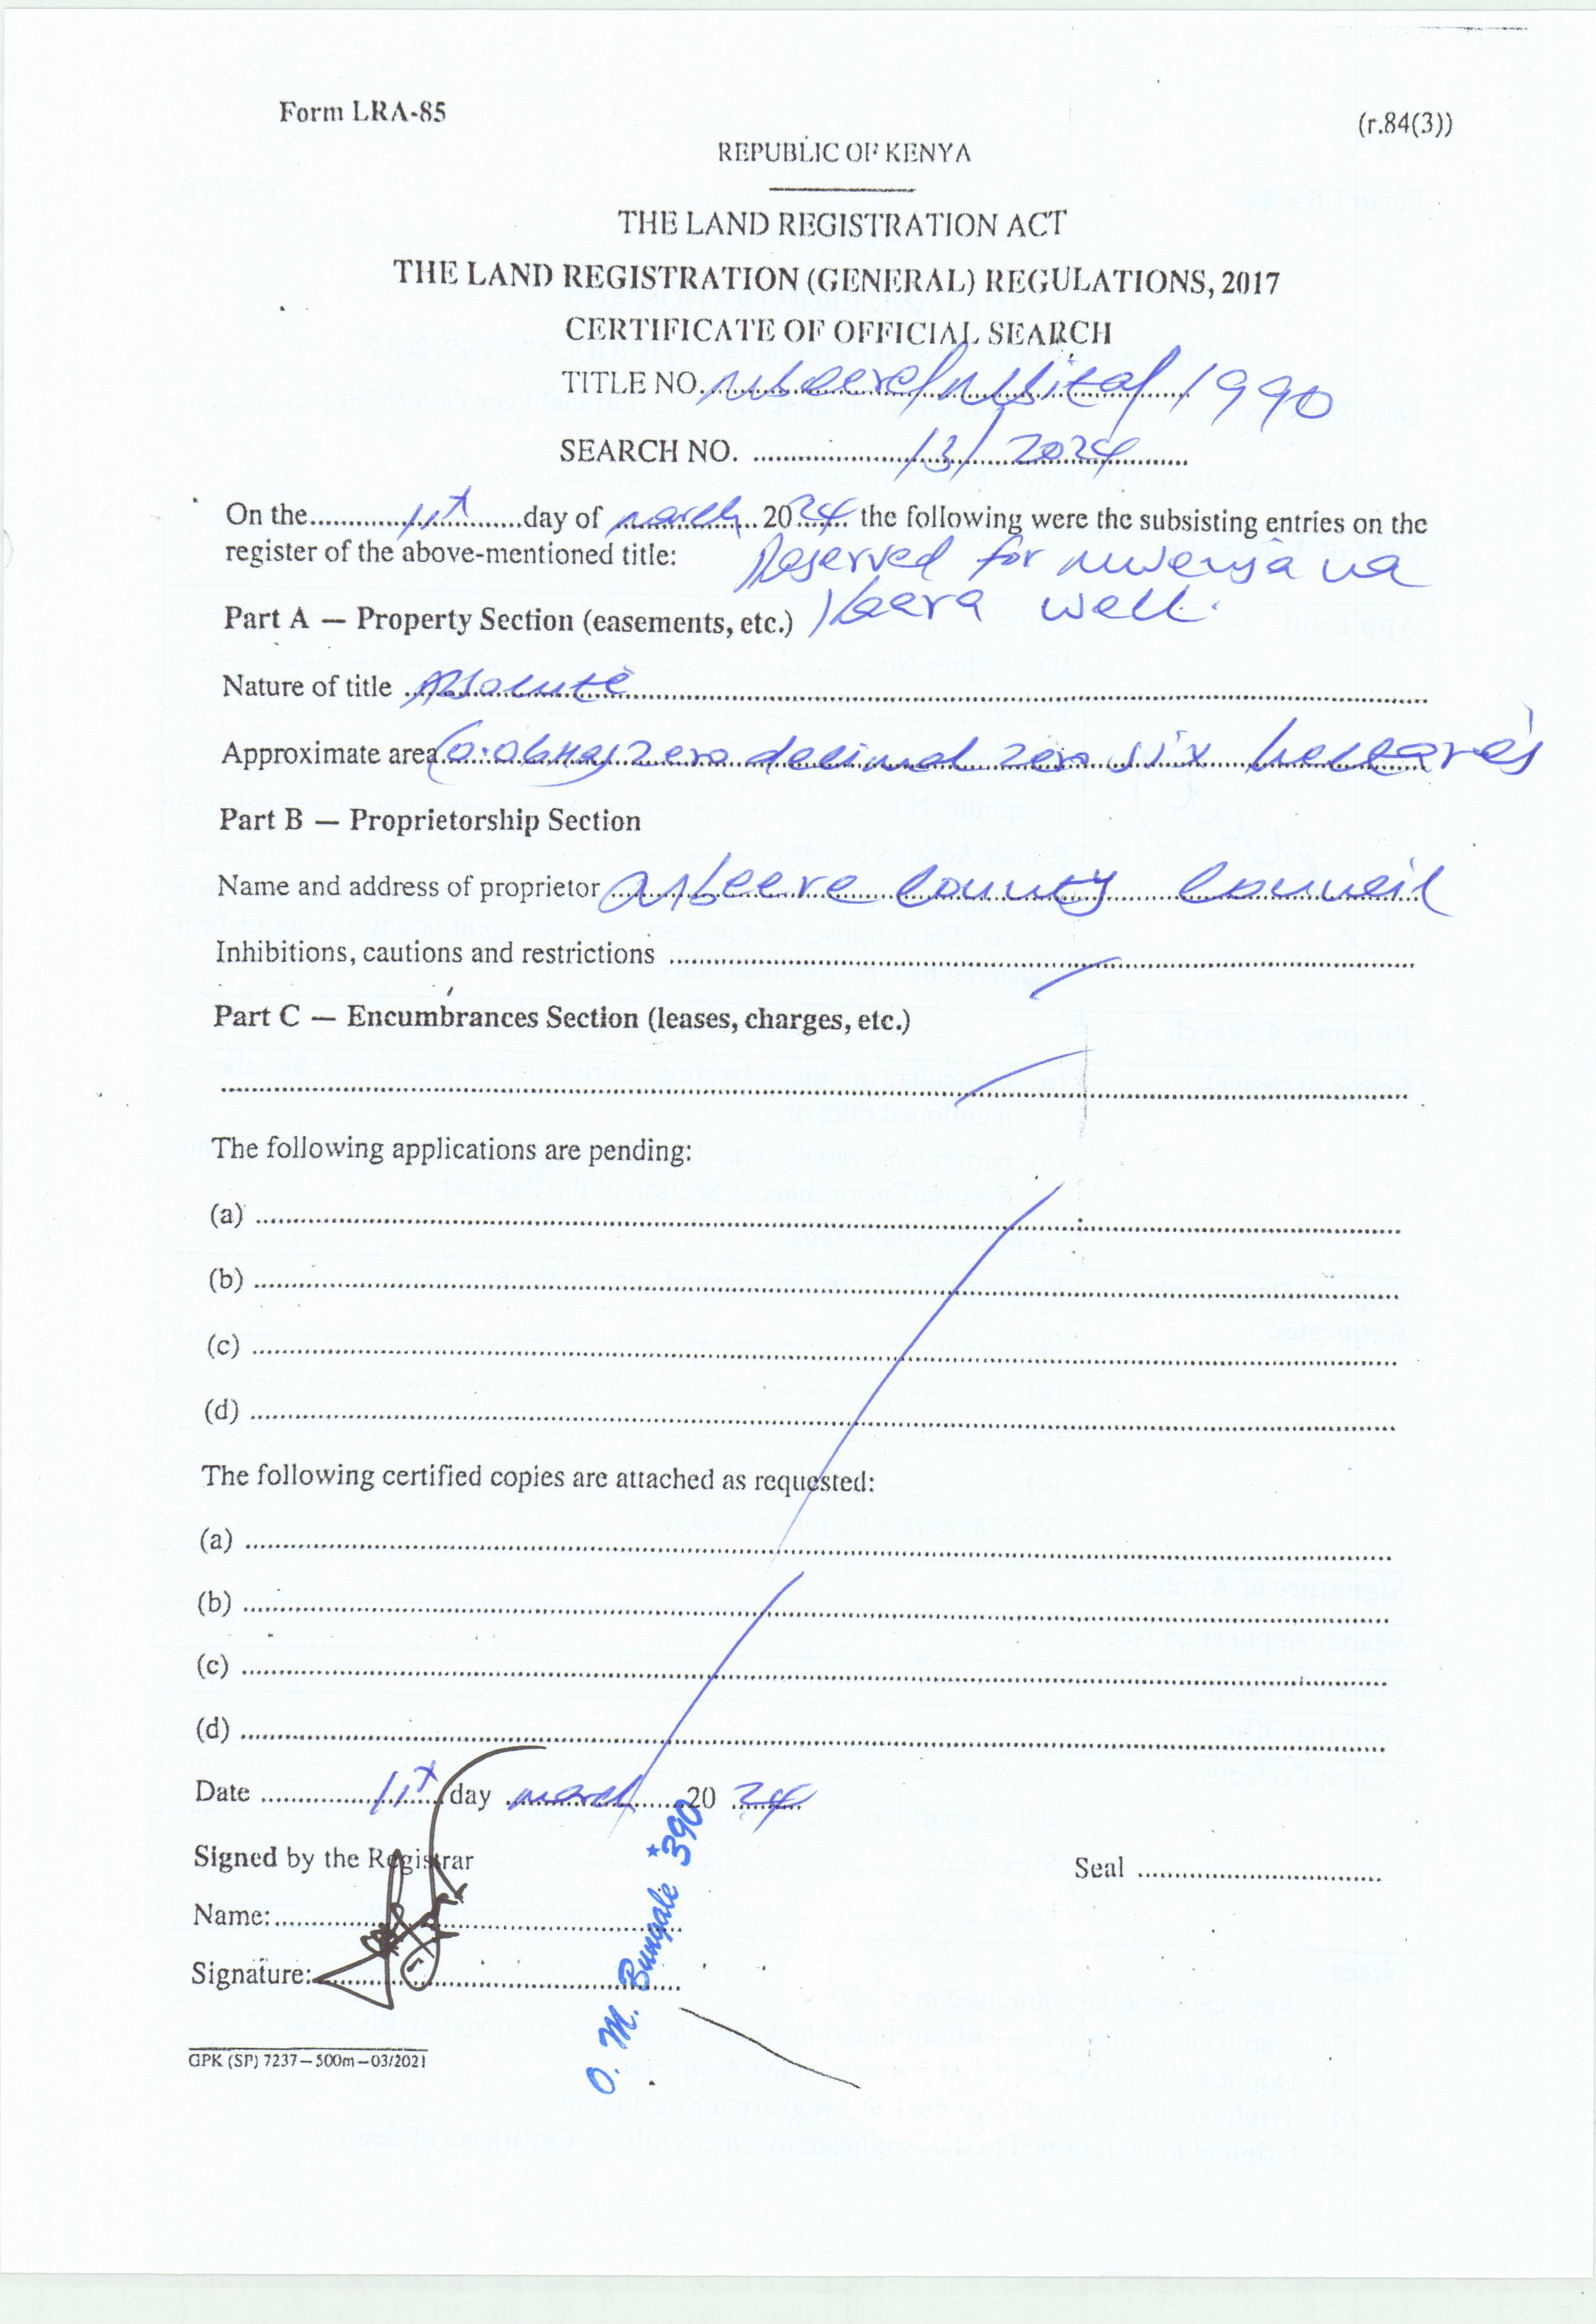 Form LRA-85
(r.84(3))
REPUBLIC OF KENYA
THE LAND REGISTRATION ACT
THE LAND REGISTRATION (GENERAL) REGULATIONS, 2017
CERTIFICATE OF OFFICIAL SEARCH
TITLE NO. Mbeere/Mbita/1990
SEARCH NO. 13/2024
On the 11th day of march 2024 the following were the subsisting entries on the
register of the above-mentioned title: Reserved for
Part A — Property Section (easements, etc.) well.
Nature of title Absolute
Approximate area (0.06ha) zero decimal zero six hectares
Part B — Proprietorship Section
Name and address of proprietor Mbeere County Council
Inhibitions, cautions and restrictions
Part C — Encumbrances Section (leases, charges, etc.)
The following applications are pending:
(a)
(b)
(c)
(d)
The following certified copies are attached as requested:
(a)
(b)
(c)
(d)
Date 11th day march 2024
Signed by the Registrar
Seal
Name:
Signature:
O. M. Bungale *390
GPK (SP) 7237—500m—03/2021